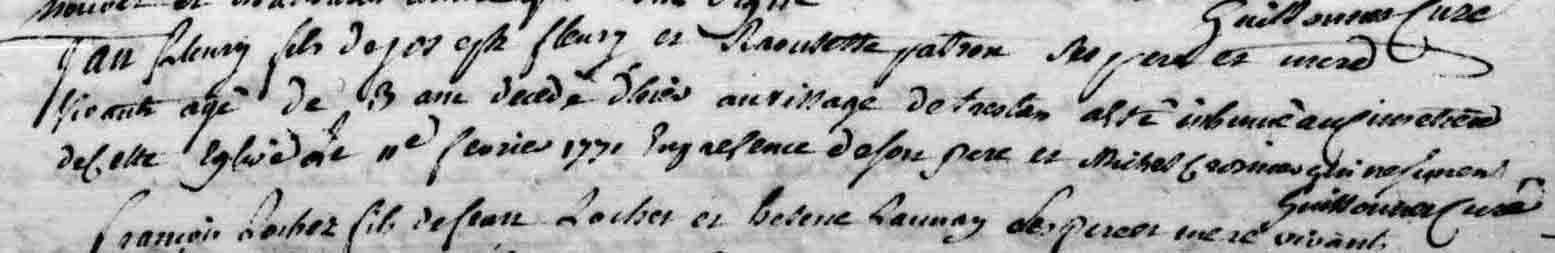 Guillonneau Curé
Jan fleury fils de joseph fleury et patron ses pere et mere
vivants agé de 3 ans decedé d'hier au village de a été inhumé au simetiere
de cette Eglise ce 11e fevrier 1771 En presence de son pere et Michel qui ne signent
Guillonneau Curé
françois Rocher fils de Jean Rocher et helene Launay ses pere et mere vivants